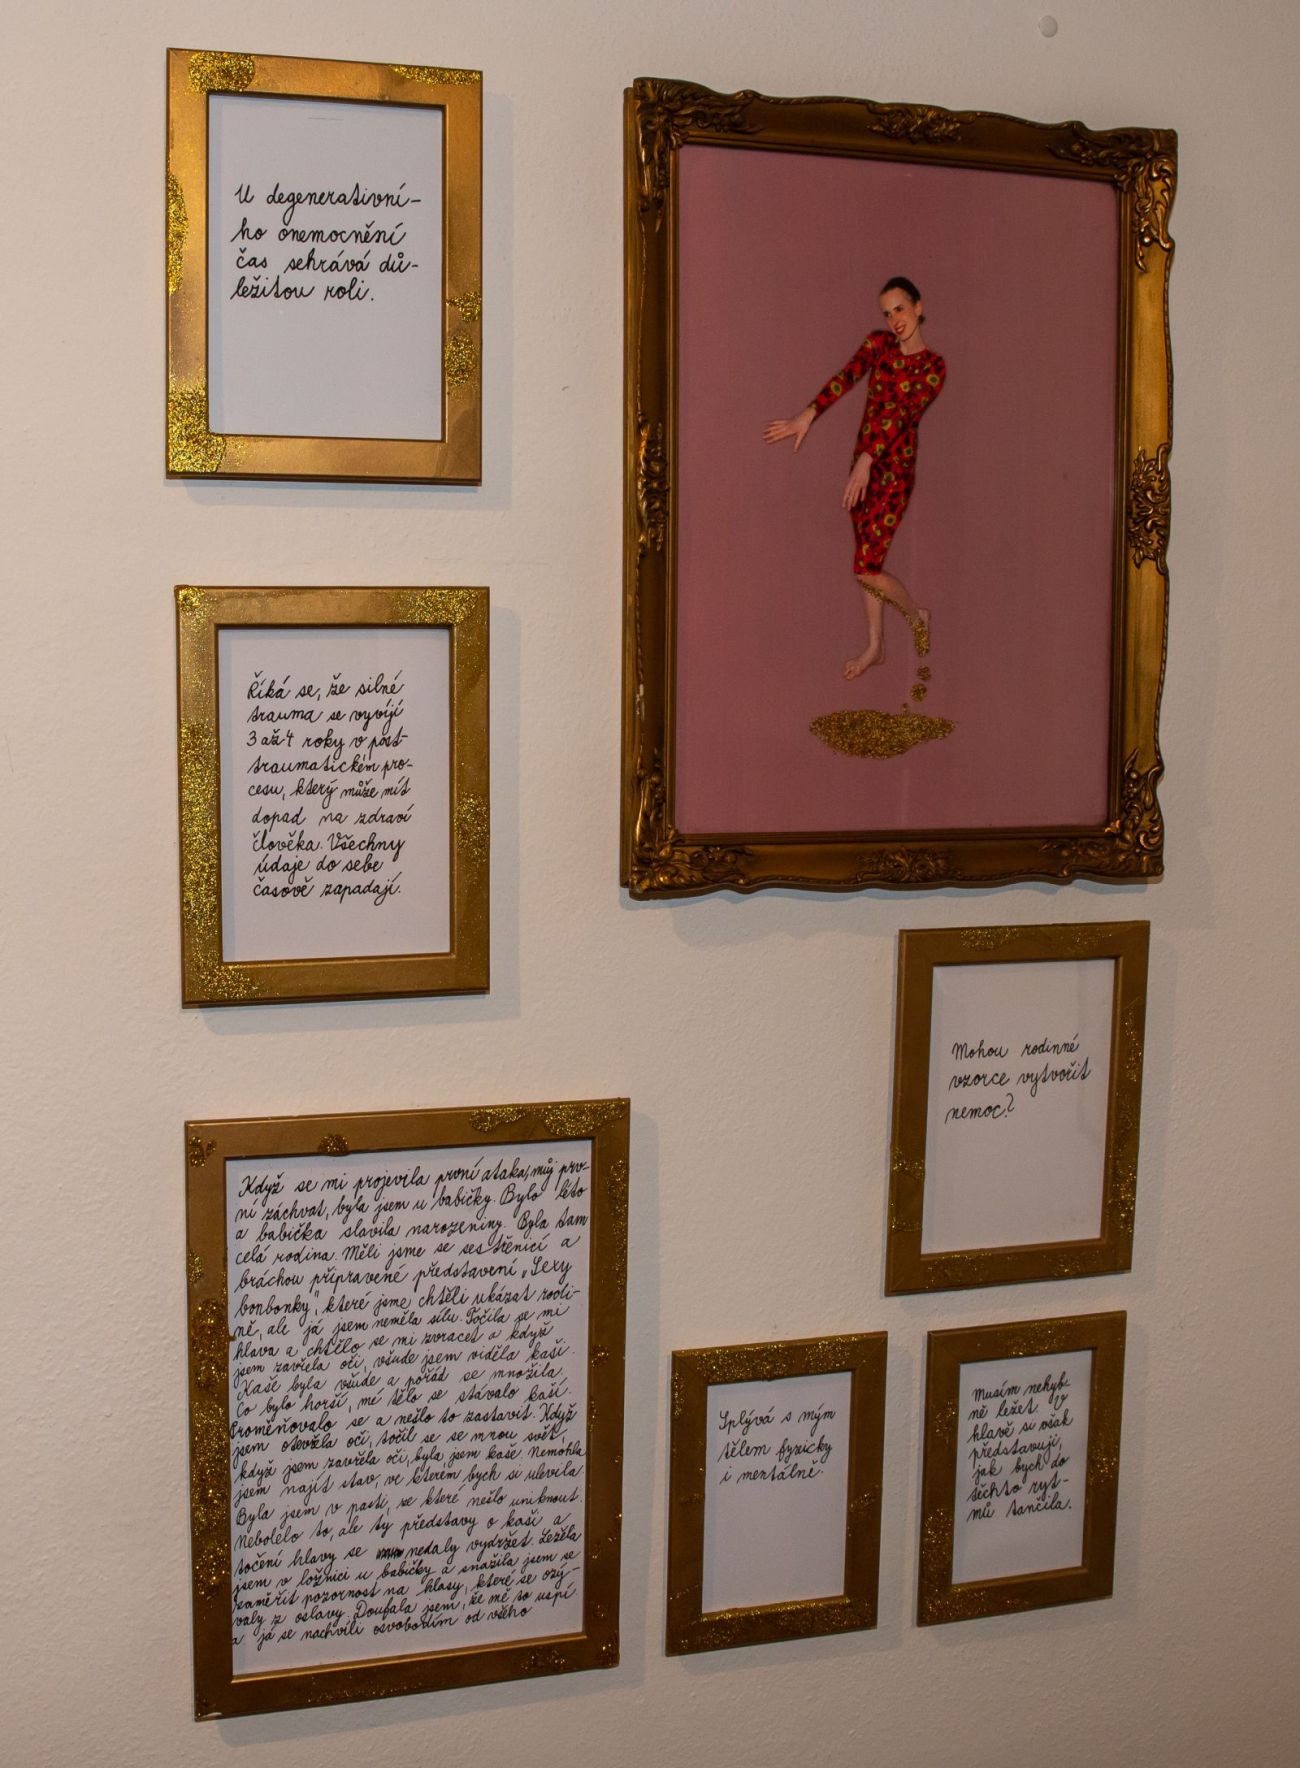 U degenerativní-
ho onemocnění
čas sehrává dů-
ležitou roli.
Říká se, že silné
trauma se vyvíjí
3 až 4 roky v post-
traumatickém pro-
cesu, který může mít
dopad na zdraví
člověka. Všechny
údaje do sebe
časově zapadají.
Když se mi projevila první ataka, můj prv-
ní záchvat, byla jsem u babičky. Bylo léto
a babička slavila narozeniny. Byla tam
celá rodina. Měli jsme se sestřenicí a
bráchou připravené představení „Sexy
bonbonky", které jsme chtěli ukázat rodi-
ně, ale já jsem neměla sílu. Točila se mi
hlava a chtělo se mi zvracet a když
jsem zavřela oči, všude jsem viděla kaši.
Kaše byla všude a pořád se množila.
Co bylo horší, mé tělo se stávalo kaší.
Proměňovalo se a nešlo to zastavit. Když
jsem otevřela oči, točil se se mnou svět,
když jsem zavřela oči, byla jsem kaše. Nemohla
jsem najít stav, ve kterém bych si ulevila.
Byla jsem v pasti, ze které nešlo uniknout.
Nebolelo to, ale ty představy o kaši a
točení hlavy se nedaly vydržet. Ležela
jsem v ložnici u babičky a snažila jsem se
zaměřit pozornost na hlasy, které se ozý-
valy z oslavy. Doufala jsem, že mě to uspí
a já se nachvíli osvobodím od všeho
Mohou rodinné
vzorce vytvořit
nemoc?
Splývá s mým
tělem fyzicky
i mentálně.
Musím nehyb-
ně ležet. V
hlavě si však
představuji,
jak bych do
těchto ryt-
mů tančila.